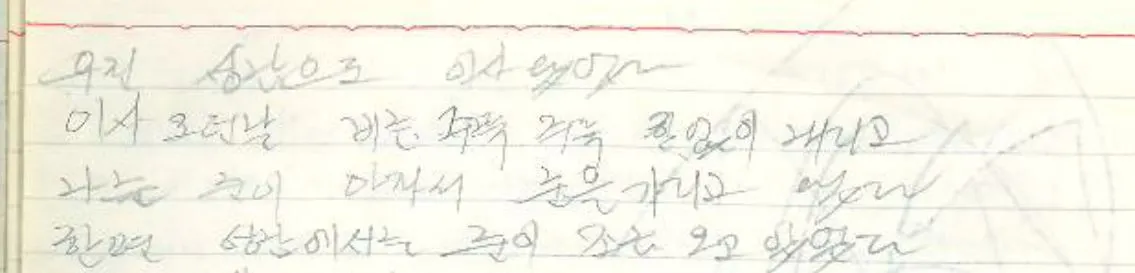 우린 성남으로 이사 왔었다
이사 오던날 비는 주룩 주룩 한없이 내리고
나는 눈이 아파서 눈을 가리고 왔다
한편 성남에서는 눈이 오고 있었다